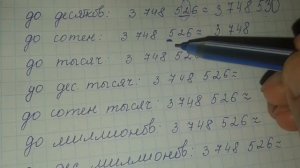 до десятков: 3 748 526 ≈ 3 748 530
до сотен: 3 748 526 ≈ 3 748
до тысяч: 3 748 526
до дес тысяч: 3 748 526 ≈
до сотен тысяч: 3 748 526 ≈
до миллионов: 3 748 526 ≈
до дес миллионов: 3 748 526 ≈